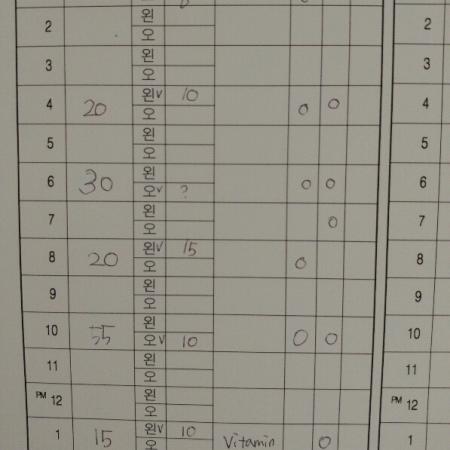 왼
2 오 2
왼
3 오 3
왼v 10
4 20 오 0 0 4
왼
5 오 5
왼
6 30 오v ? 0 0 6
왼
7 오 0 7
왼v 15
8 20 오 0 8
왼
9 오 9
왼
10 55 오v 10 0 0 10
왼
11 오 11
왼
PM 12 오 PM 12
왼v 10
1 15 오 Vitamin 0 1